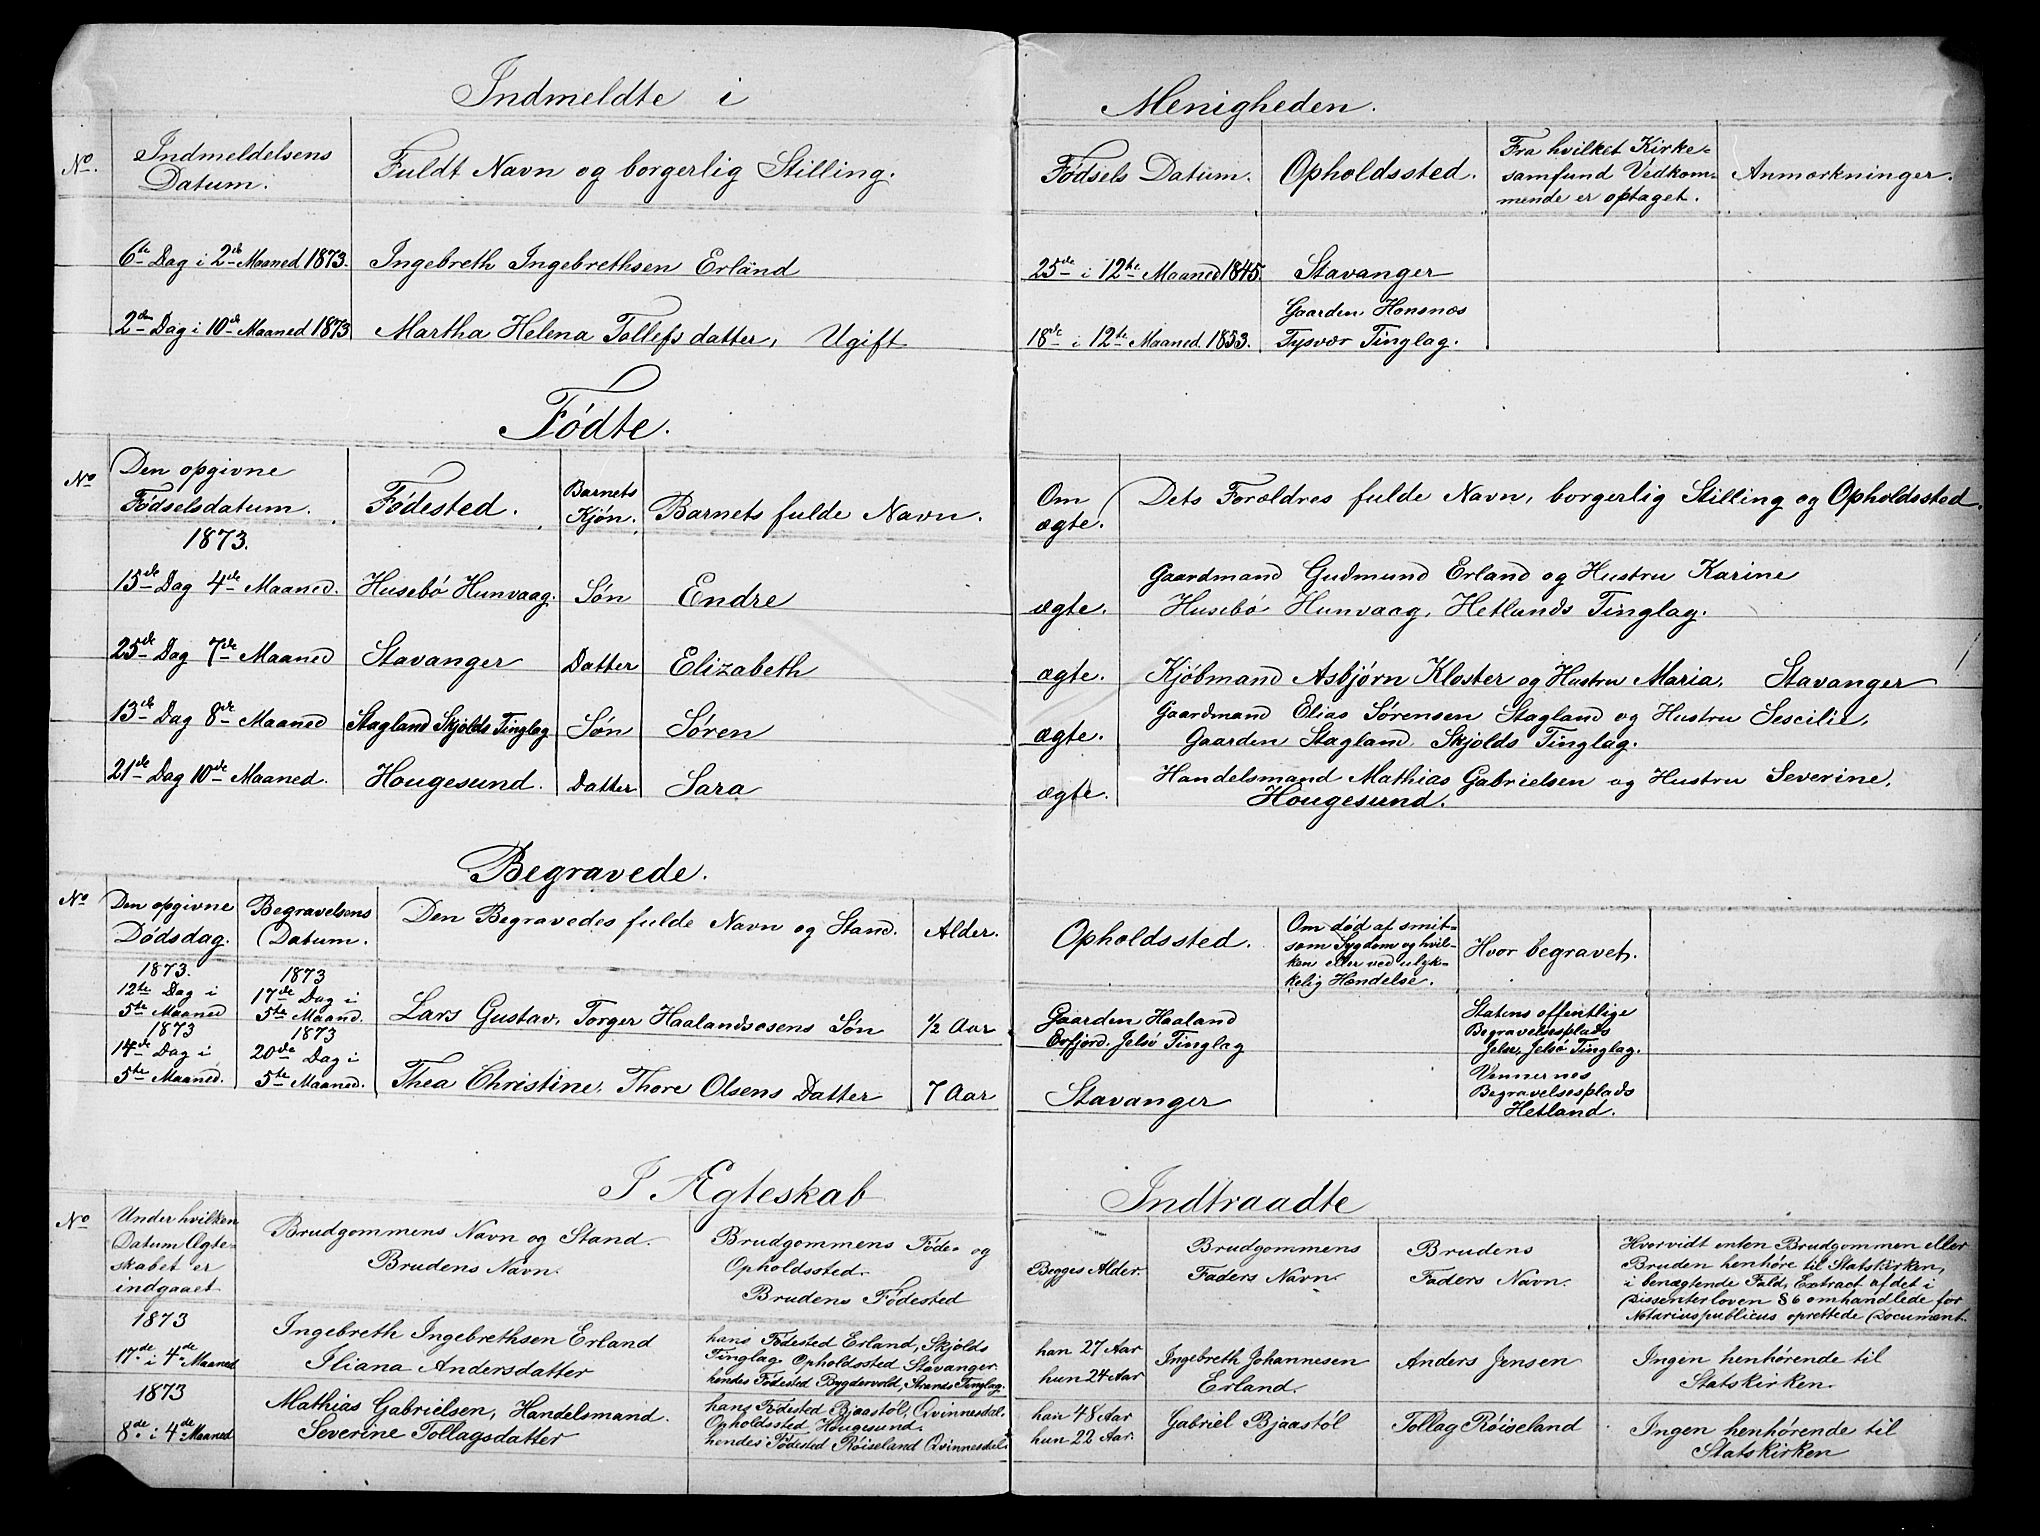 Indmeldte i Menigheden.
No.
Indmeldelsens
Datum.
Fuldt Navn og borgerlig Stilling.
Fødsels Datum.
Opholdssted.
Fra hvilket Kirke=
samfund Vedkom=
mende er optaget.
Anmærkninger.
6te Dag i 2de Maaned 1873.
Ingebreth Ingebrethsen Erland
25de i 12te Maaned 1845.
Stavanger
2den Dag i 10de Maaned 1873
Martha Helena Tollefsdatter, Ugift
18de i 12te Maaned. 1853.
Gaarden Hansnæs
Tysvær Tinglag.
Fødte.
No
Den opgivne
Fødselsdatum.
1873.
Fødested.
Barnets
Kjøn.
Barnets fulde Navn.
Om
ægte.
Dets Forældres fulde Navn, borgerlig Stilling og Opholdssted.
15de Dag 4de Maaned.
Husebø Hunvaag.
Søn
Endre
ægte.
Gaardmand Gudmund Erland og Hustru Karine
Husebø Hunvaag, Hetlands Tinglag.
25de Dag 7de Maaned
Stavanger
Datter
Elizabeth
ægte.
Kjøbmand Asbjørn Kloster og Hustru Maria. Stavanger
13de Dag 8de Maaned
Stagland Skjolds Tinglag
Søn
Søren
ægte.
Gaardmand Elias Sørensen Stagland og Hustru Sescilie,
Gaarden Stagland, Skjolds Tinglag.
21de Dag 10de Maaned.
Hougesund.
Datter
Sara
ægte.
Handelsmand Mathias Gabrielsen og Hustru Severine,
Hougesund.
Begravede.
No
Den opgivne
Dødsdag.
Begravelsens
Datum.
Den Begravedes fulde Navn og Stand.
Alder.
Opholdssted.
Om død af smit=
som Sygdom og hvil=
ken eller ved ulyk=
kelig Hændelse.
Hvor begravet.
1873.
12te Dag i
5te Maaned
1873
17de Dag i
5te Maaned.
Lars Gustav, Torger Haalandsosens Søn
1/2 Aar
Gaarden Haaland
Erfjord. Jelsø Tinglag
Statens offentlige
Begravelsesplads
Jelse, Jelsø Tinglag.
1873
14de Dag i
5te Maaned.
1873
20de Dag i
5te Maaned.
Thea Christine, Thore Olsens Datter
7 Aar
Stavanger
Vennernes
Begravelsesplads
Hetland.
I Ægteskab Indtraadte
No
Under hvilken
Datum Ægte=
skabet er
indgaaet
Brudgommens Navn og Stand.
Brudens Navn.
Brudgommens Føde= og
Opholdssted.
Brudens Fødested
Begges Alder.
Brudgommens
Faders Navn.
Brudens
Faders Navn.
Hvorvidt enten Brudgommen eller
Bruden henhøre til Statskirken,
i benægtende Fald, Extract af det i
Dissenterloven § 6 omhandlede for
Notarius publicus oprettede Document.
1873
17de i 4de Maaned
Ingebreth Ingebrethsen Erland
Iliana Andersdatter
hans Fødested Erland, Skjolds
Tinglag Opholdssted Stavanger.
hendes Fødested Bygdevold, Strands Tinglag.
han 27 Aar
hun 24 Aar
Ingebreth Johannesen
Erland.
Anders Jensen
Ingen henhørende til
Statskirken.
1873
8de i 4de Maaned
Mathias Gabrielsen, Handelsmand.
Severine Tollagsdatter
hans Fødested Bjaastøl, Qvinnesdal.
Opholdssted Hougesund.
hendes Fødested Røiseland Qvinnesdal.
han 48 Aar
hun 22 Aar.
Gabriel Bjaastøl
Tollag Røiseland
Ingen henhørende til
Statskirken